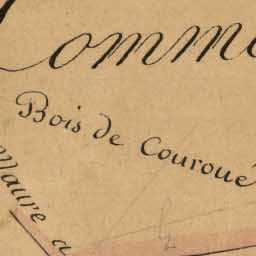 Comm
Bois de Couroué
Maure a